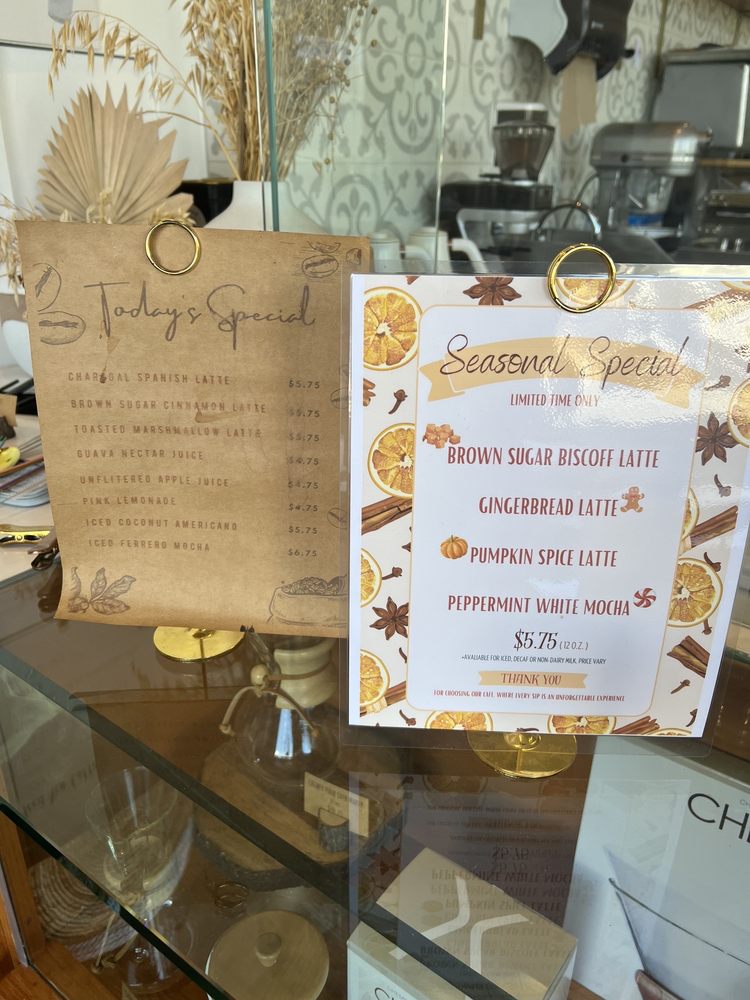 Today's Special
CHARCOAL SPANISH LATTE $5.75
BROWN SUGAR CINNAMON LATTE $5.75
TOASTED MARSHMALLOW LATTE $5.75
GUAVA NECTAR JUICE $4.75
UNFLITERED APPLE JUICE $4.75
PINK LEMONADE $4.75
ICED COCONUT AMERICANO $5.75
ICED FERRERO MOCHA $6.75
Seasonal Special
LIMITED TIME ONLY
BROWN SUGAR BISCOFF LATTE
GINGERBREAD LATTE
PUMPKIN SPICE LATTE
PEPPERMINT WHITE MOCHA
$5.75 (12 OZ.)
*AVALIABLE FOR ICED, DECAF OR NON-DAIRY MILK. PRICE VARY
THANK YOU
FOR CHOOSING OUR CAFE. WHERE EVERY SIP IS AN UNFORGETTABLE EXPERIENCE